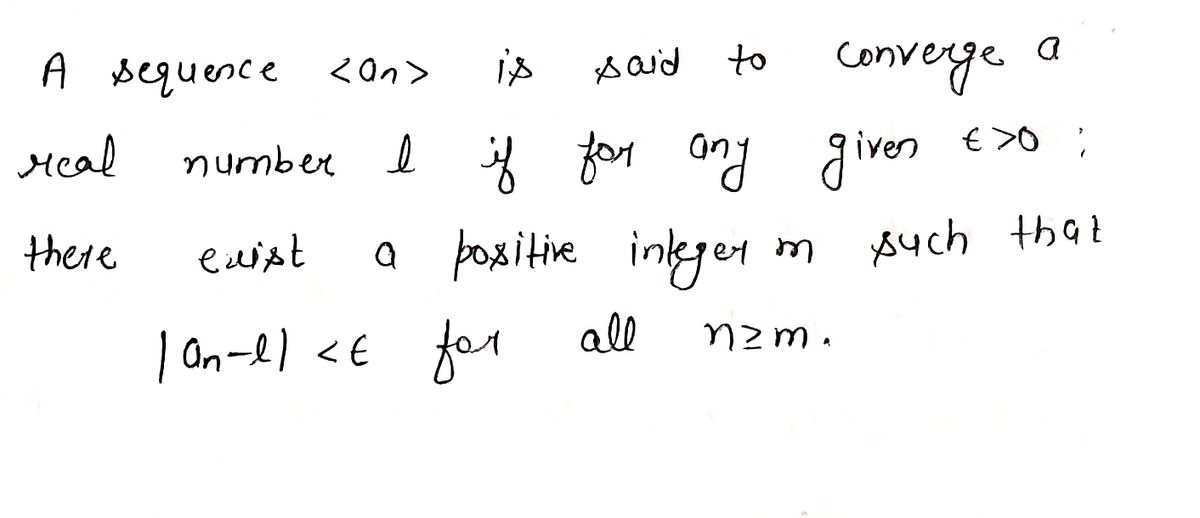 A sequence <an> is said to converge a
real number l if for any given ε>0 ;
there exist a positive integer m such that
|an-l| <ε for all n≥m.